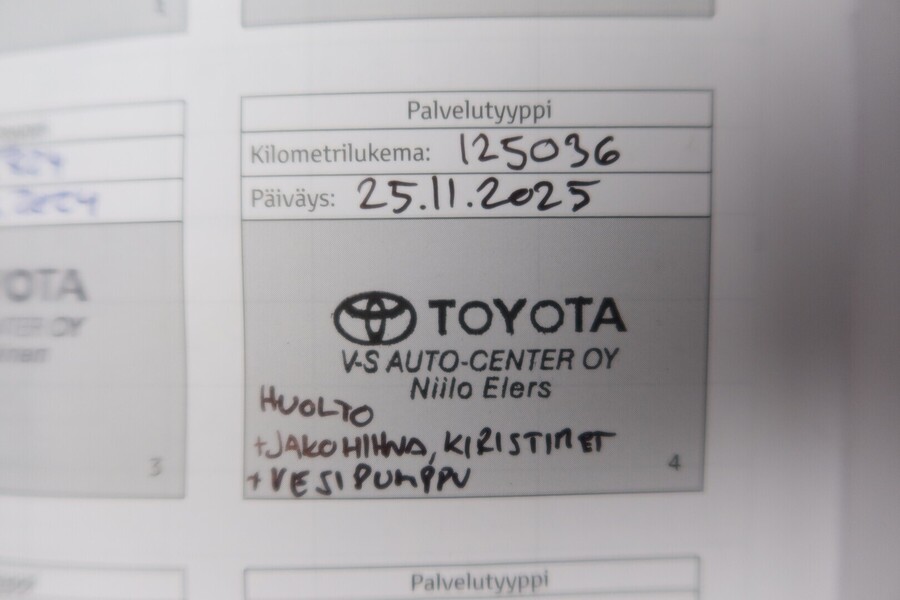 Palvelutyyppi
Kilometrilukema: 125036
Päiväys: 25.11.2025
TOYOTA
V-S AUTO-CENTER OY
Niilo Elers
HUOLTO
+JAKOHIHNA, KIRISTIMET
+VESIPUMPPU
4
OTA
OY
3
Palvelutyyppi